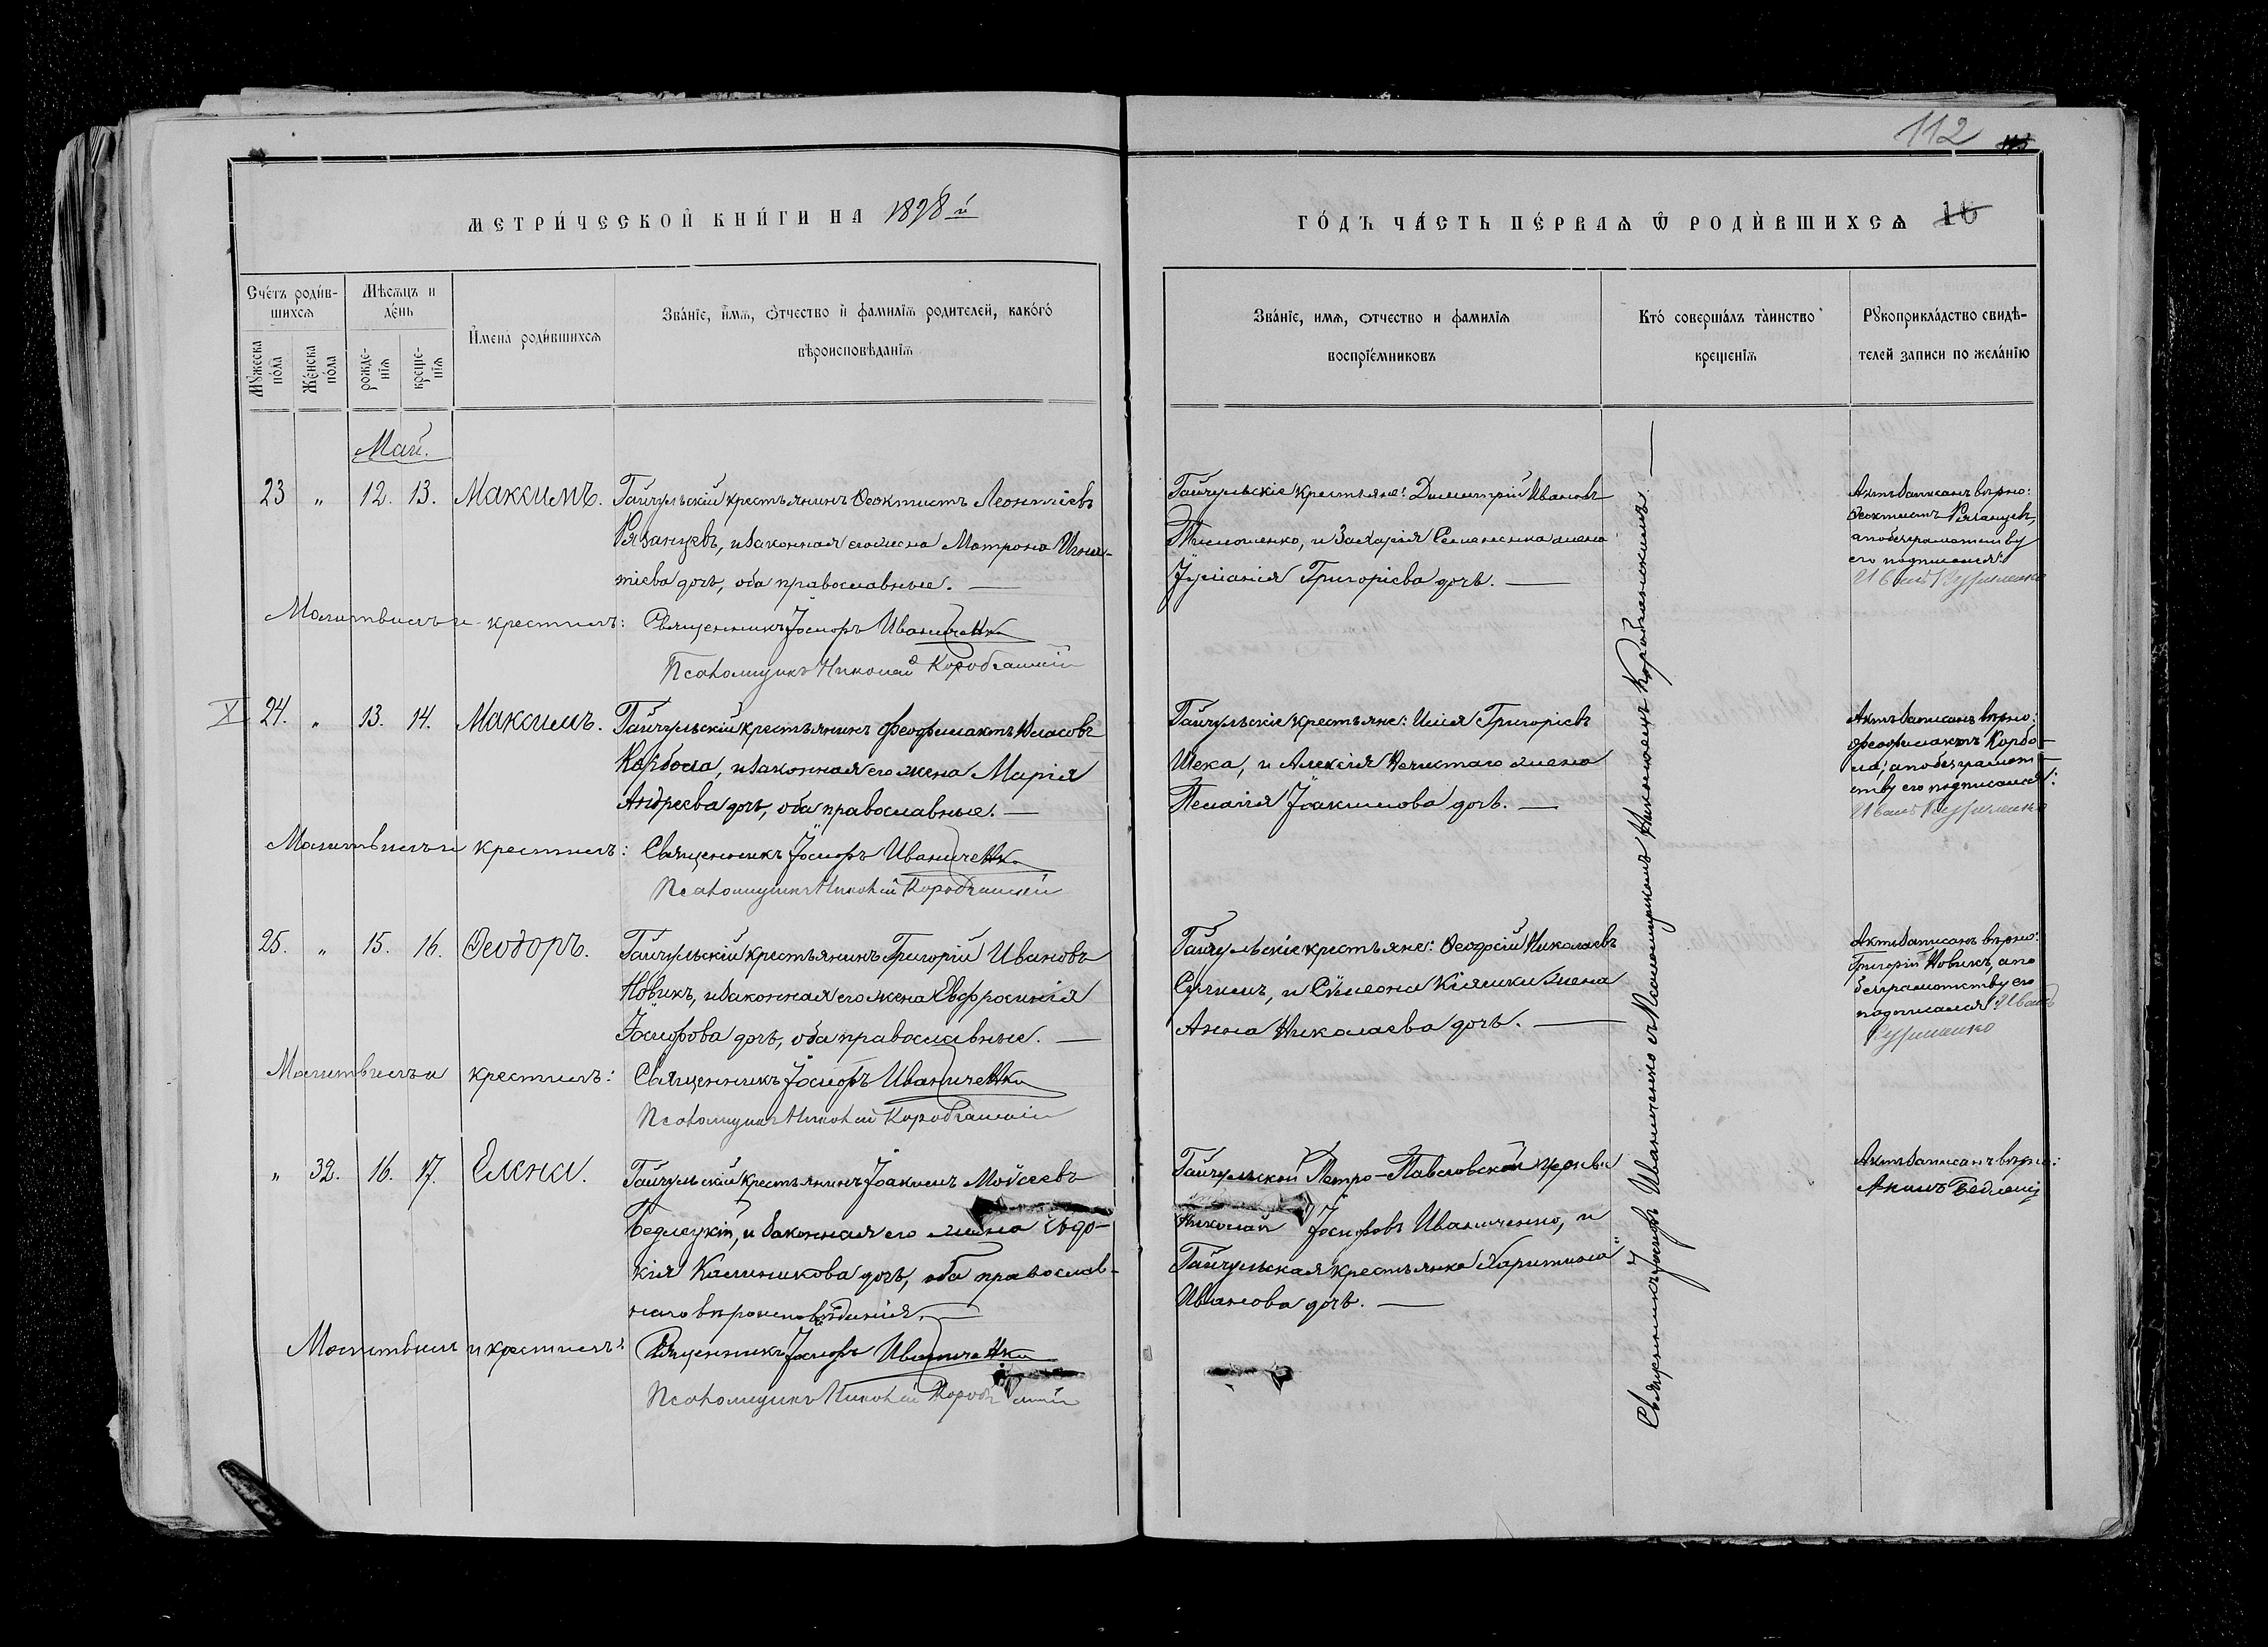 112
МЕТРИЧЕСКОЙ КНИГИ НА 1898 й
ГОДЪ ЧАСТЬ ПЕРВАЯ Ѿ РОДИВШИХСЯ 16
Счетъ родив-
шихся
Мѣсяцъ и
день
Имена родившихся
Званіе, имя, отчество и фамилія родителей, какого
вѣроисповѣданія
Мужеска пола
Женска пола
рожде-
нія
креще-
нія
Званіе, имя, отчество и фамилія
воспріемниковъ
Кто совершалъ таинство
крещенія
Рукоприкладство свидѣ-
телей записи по желанію
Май.
23 „ 12. 13. Максимъ. Гайчульскій крестьянинъ Ѳеоктистъ Леонтіевъ
Рязанцевъ, и законная его жена Матрона Игна-
тіева дочь, оба православные. —
Гайчульскіе крестьяне: Димитрій Ивановъ
Тимошенко, и Захарія Семененка жена
Іуліанія Григоріева дочь. —
Актъ записанъ вѣрно:
Ѳеоктистъ Рязанцевъ,
а по безграмотству
его подписался:
Иванъ
Молитвилъ и крестилъ: Священникъ Іосифъ Иваниченко
Псаломщикъ Николай Коробчанскій
X 24. „ 13. 14. Максимъ. Гайчульскій крестьянинъ Феофилактъ Власовъ
Корбола, и законная его жена Марія
Андреева дочь, оба православные. —
Гайчульскіе крестьяне: Илія Григоріевъ
Шека, и Алексія Нечистаго жена
Пелагія Іоакимова дочь. —
Актъ записанъ вѣрно:
Феофилактъ Корбо-
ла, а по безграмот-
ству его подписался:
Иванъ
Молитвилъ и крестилъ: Священникъ Іосифъ Иваниченко
Псаломщикъ Николай Коробчанскій
25. „ 15. 16. Ѳеодоръ. Гайчульскій крестьянинъ Григорій Ивановъ
Новикъ, и законная его жена Евфросинія
Іосифова дочь, оба православные. —
Гайчульскіе крестьяне: Ѳеодосій Николаевъ
и Сѵмеона жена
Анна Николаева дочь. —
Актъ записанъ вѣрно:
Григорій Новикъ, а по
безграмотству его
подписался Иванъ
Молитвилъ и крестилъ: Священникъ Іосифъ Иваниченко
Псаломщикъ Николай Коробчанскій
„ 32. 16. 17. Елена. Гайчульскій крестьянинъ Іоакимъ Мойсеевъ
Бедлецкій, и законная его жена Евдо-
кія Калиникова дочь, оба православ-
наго вѣроисповѣданія. —
Гайчульской Петро-Павловской церкви
Николай Іосифовъ Иваниченко, и
Гайчульская крестьянка Харитина
Иванова дочь. —
Актъ записанъ вѣрно:
Акимъ
Молитвилъ и крестилъ: Священникъ Іосифъ Иваниченко
Псаломщикъ Николай Коробчанскій
Священникъ Іосифъ Иваниченко съ Псаломщикомъ Николаемъ Коробчанскимъ. —